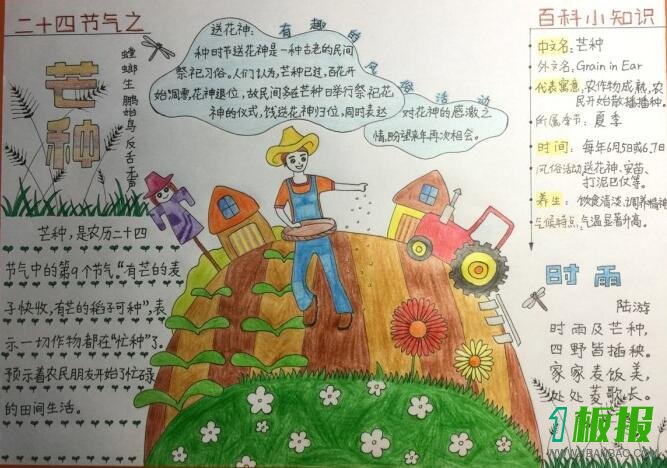 二十四节气之
芒种
螳螂生 鹏始鸟 反舌无声
有趣的风俗活动
送花神:
种时节送花神是一种古老的民间
祭祀习俗。人们认为,芒种已过,百花开
始凋零,花神退位,故民间多在芒种日举行祭祀花
神的仪式,饯送花神归位,同时表达
对花神的感激之
情,盼望来年再次相会。
芒种,是农历二十四
节气中的第9个节气。“有芒的麦
子快收,有芒的稻子可种”,表
示一切作物都在“忙种”了。
预示着农民朋友开始了忙碌
的田间生活。
百科小知识
中文名:芒种
外文名:Grain in Ear
代表寓意:农作物成熟,农
民开始散播播种。
所属季节:夏季
时间:每年6月5日或6、7日
风俗活动:送花神、安苗、
打泥巴仗等。
养生:饮食清淡、调养精神
气候特点:气温显著升高。
时雨
陆游
时雨及芒种,
四野皆插秧。
家家麦饭美,
处处菱歌长。
1板报
WWW.1BANBAO.COM